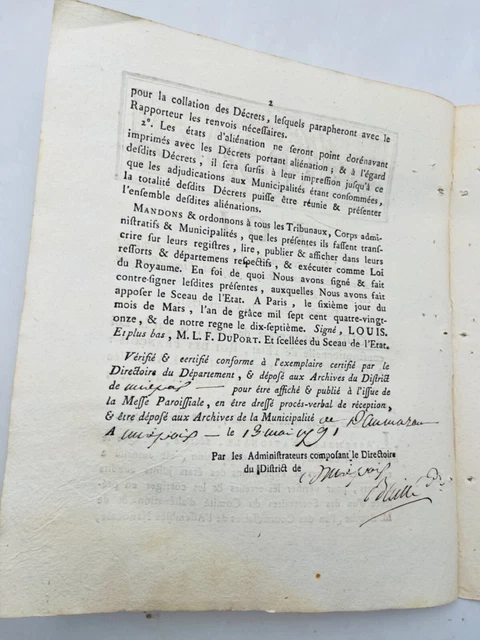 2
pour la collation des Décrets, lesquels parapheront avec le
Rapporteur les renvois nécessaires.
2°. Les états d'aliénation ne seront point dorénavant
imprimés avec les Décrets portant aliénation; & à l'égard
desdits Décrets, il sera sursis à leur impression jusqu'à ce
que les adjudications aux Municipalités étant consommées,
la totalité desdits Décrets puisse être réunie & présenter
l'ensemble desdites aliénations.
MANDONS & ordonnons à tous les Tribunaux, Corps admi-
nistratifs & Municipalités, que les présentes ils fassent trans-
crire sur leurs registres, lire, publier & afficher dans leurs
ressorts & départemens respectifs, & exécuter comme Loi
du Royaume. En foi de quoi Nous avons signé & fait
contre-signer lesdites présentes, auxquelles Nous avons fait
apposer le Sceau de l'Etat. A Paris, le sixième jour du
mois de Mars, l'an de grâce mil sept cent quatre-vingt-
onze, & de notre regne le dix-septième. Signé, LOUIS.
Et plus bas, M. L. F. DUPORT. Et scellées du Sceau de l'Etat.
Vérifié & certifié conforme à l'exemplaire certifié par le
Directoire du Département, & déposé aux Archives du District
de mirepoix pour être affiché & publié à l'issue de
la Messe Paroissiale, en être dressé procès-verbal de réception,
& être déposé aux Archives de la Municipalité de
A mirepoix le 13 mai 1791
Par les Administrateurs composant le Directoire
du District de mirepoix